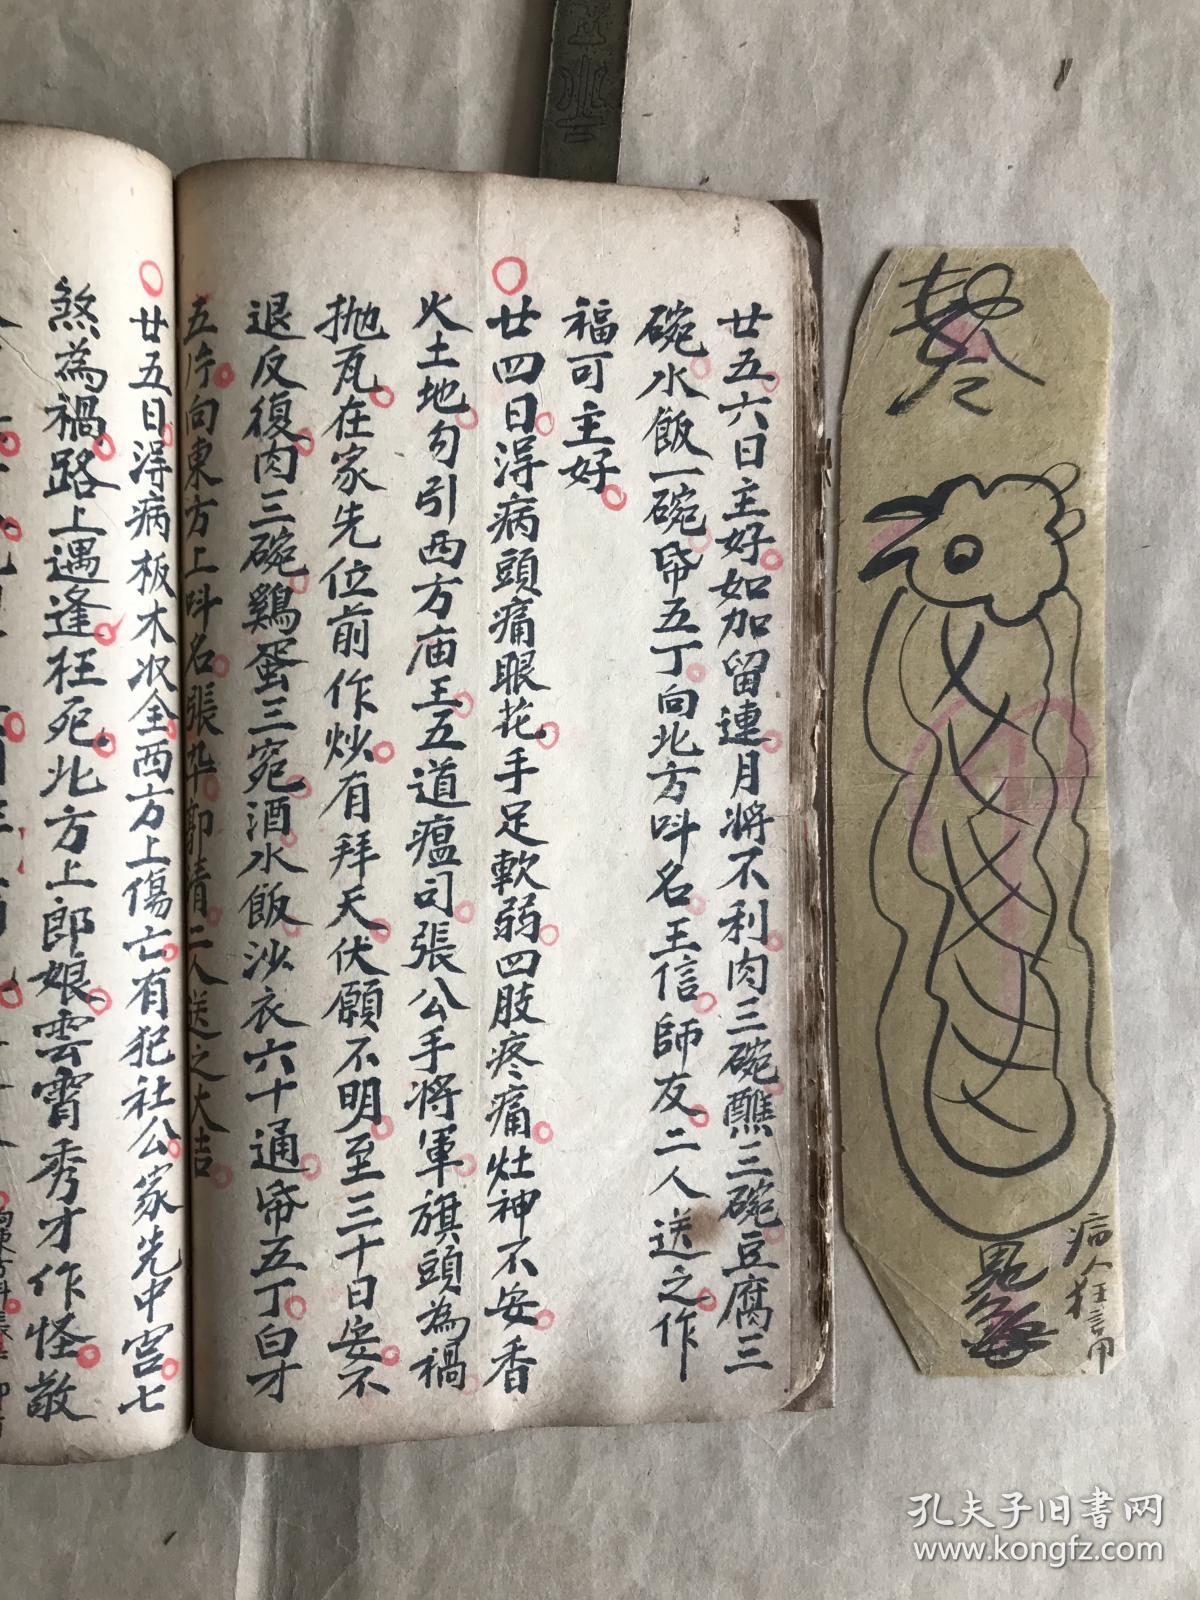 廿五六日主好如加留連月将不利肉三碗醮三碗豆腐三
碗水飯一碗帋五丁向北方呌名王信師友二人送之作
福可主好
廿四日淂病頭痛眼花手足軟弱四肢疼痛灶神不安香
火土地勾引西方庙王五道瘟司張公手将軍旗頭為禍
抛瓦在家先位前作炒有拜天伏願不明至三十日安不
退反復肉三碗鷄蛋三宛酒水飯沙衣六十通帋五丁白才
五片向東方上呌名張华郭清二人送之大吉
廿五日淂病板木収全西方上傷亡有犯社公家先中宫七
煞為禍路上遇逢枉死北方上郎娘雲霄秀才作怪敬
病人狂言用
孔夫子旧书网
www.kongfz.com